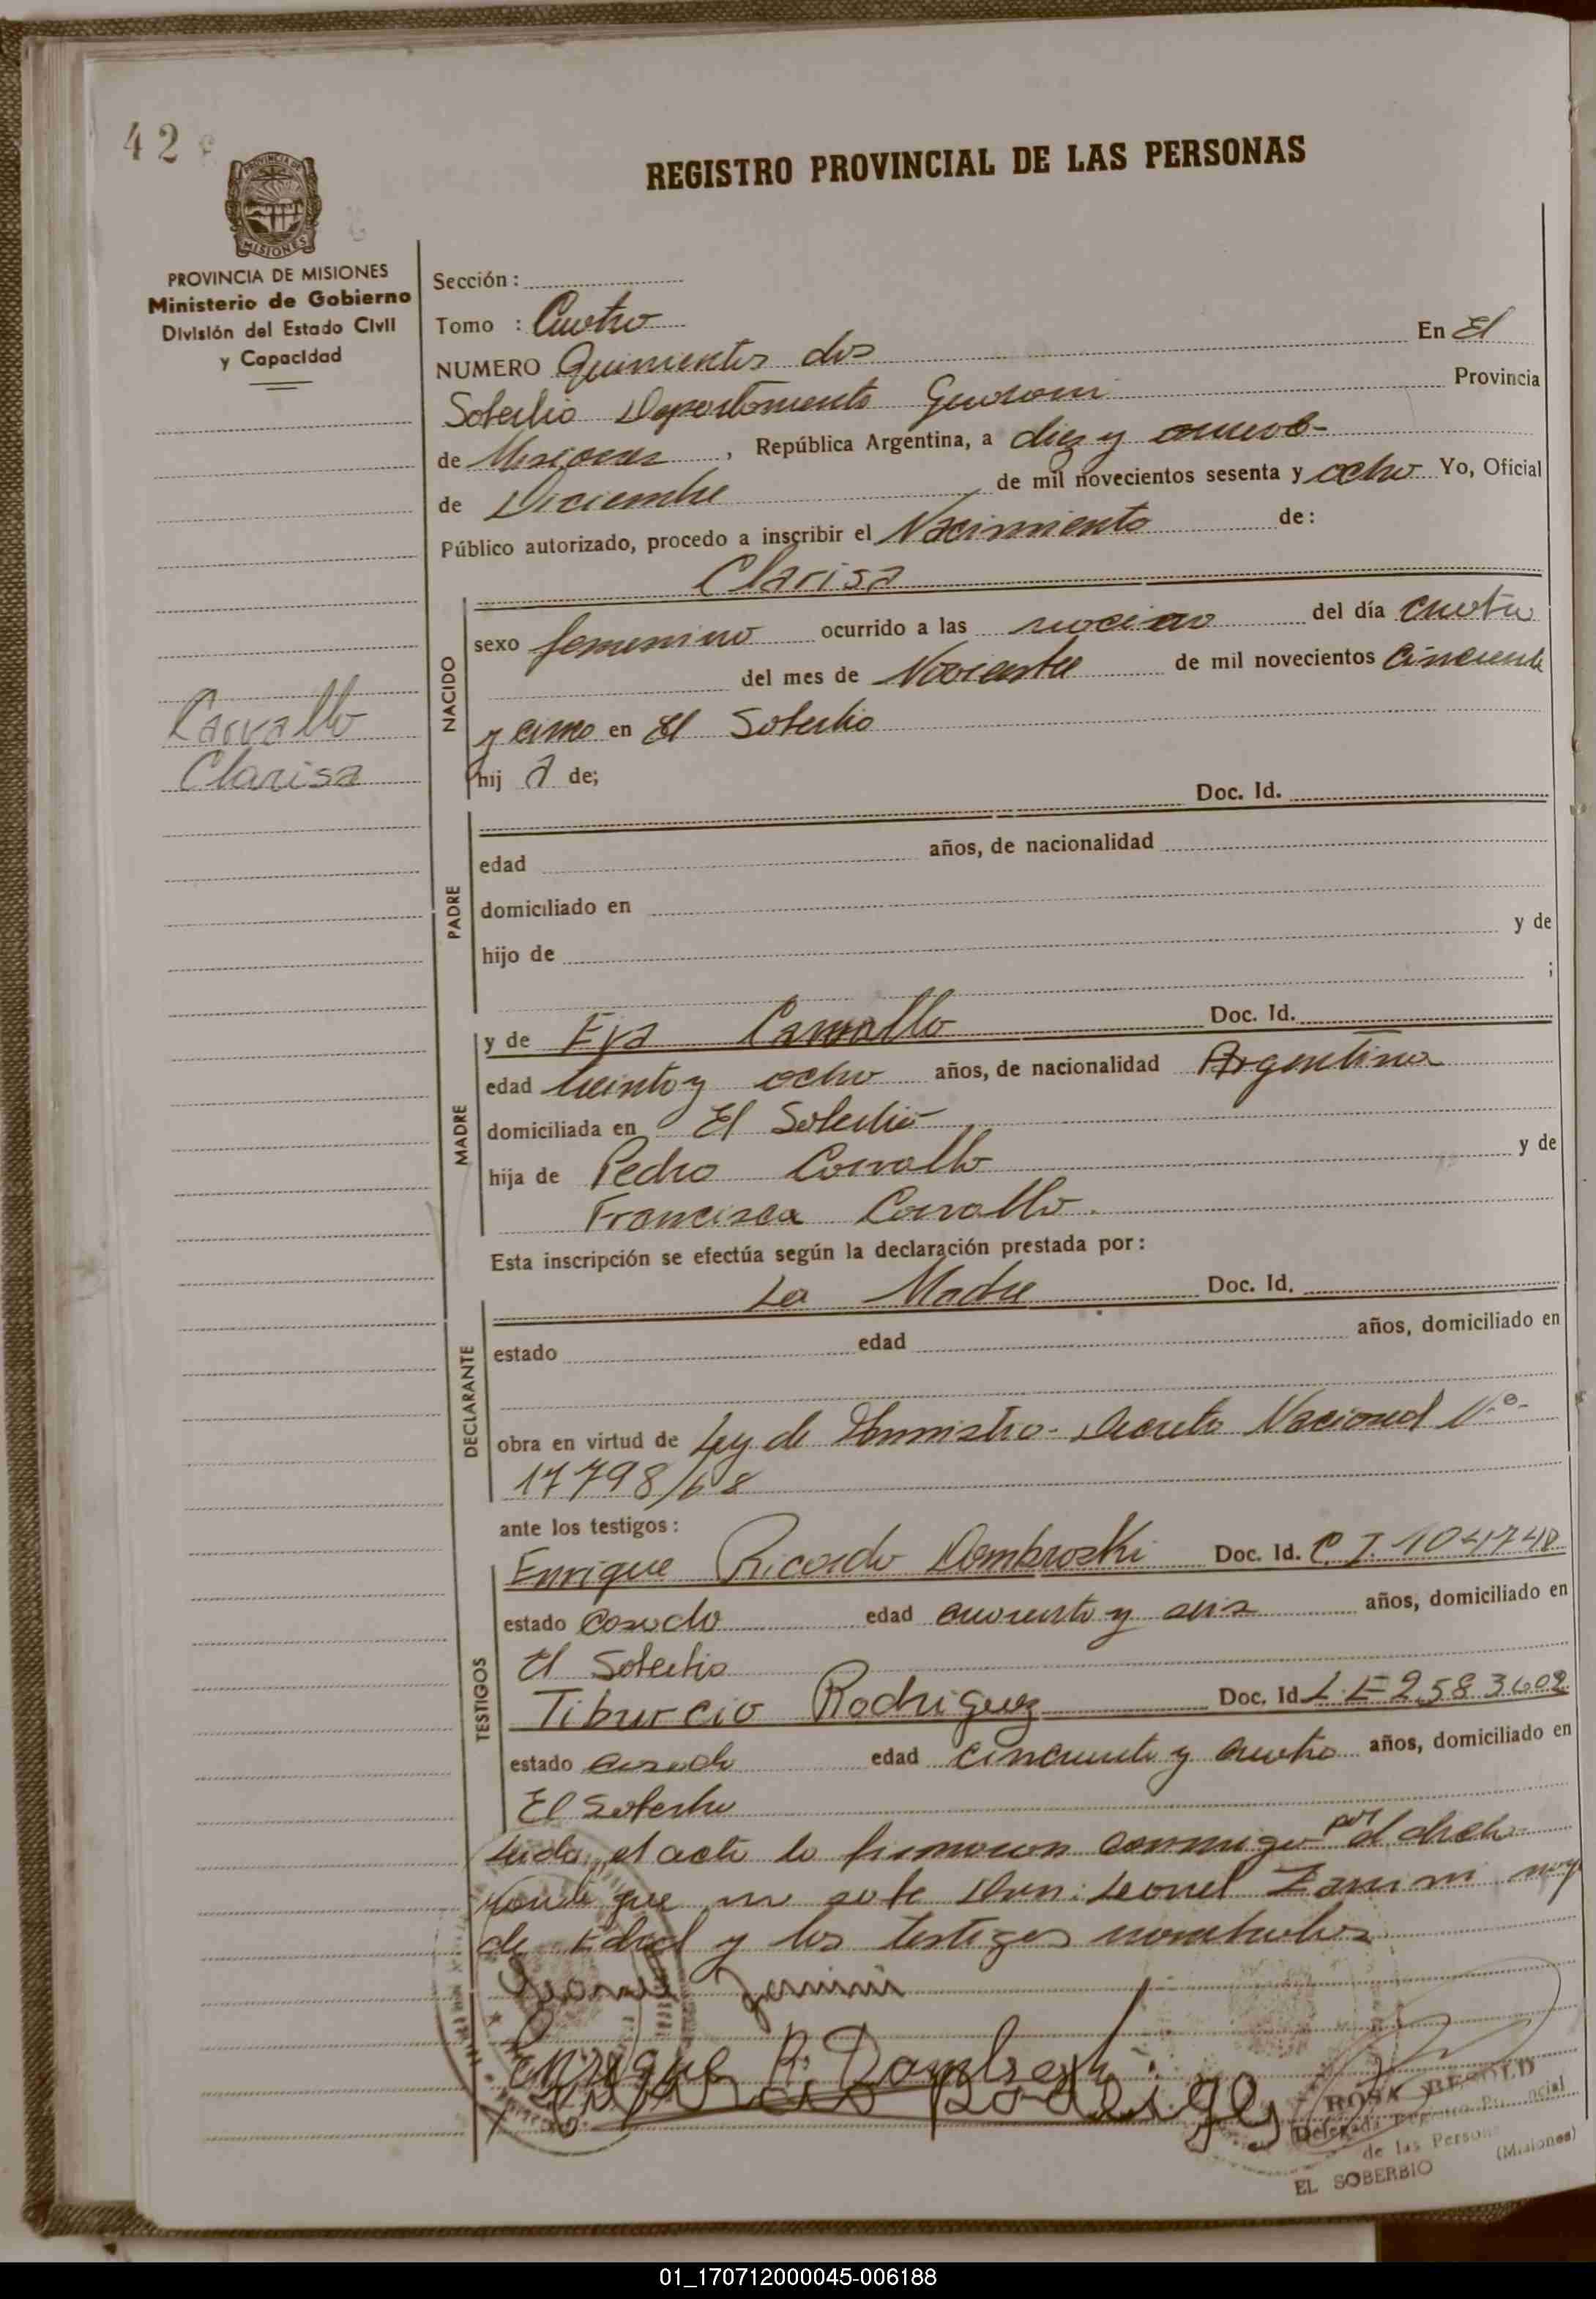 42
REGISTRO PROVINCIAL DE LAS PERSONAS
PROVINCIA DE MISIONES
Ministerio de Gobierno
División del Estado Civil
y Capacidad
Sección:
Tomo : Cuatro
NUMERO Quinientos dos En El
Soberbio Departamento Guarani Provincia
de Misiones, República Argentina, a diez y nueve
de Diciembre de mil novecientos sesenta y ocho Yo, Oficial
Público autorizado, procedo a inscribir el Nacimiento de:
Clarisa
NACIDO
sexo femenino ocurrido a las del día cuatro
del mes de Noviembre de mil novecientos Cincuenta
y cinco en El Soberbio
hij a de;
Carvallo
Clarisa
PADRE
Doc. Id.
edad años, de nacionalidad
domiciliado en
hijo de y de
;
MADRE
y de Eva Carvallo Doc. Id.
edad treinta y ocho años, de nacionalidad Argentina
domiciliada en El Soberbio
hija de Pedro Carvallo y de
Francisca Carvallo.
Esta inscripción se efectúa según la declaración prestada por:
DECLARANTE
La Madre Doc. Id.
estado edad años, domiciliado en
obra en virtud de Ley de Amnistia - Decreto Nacional Nº
17798/68
ante los testigos:
TESTIGOS
Enrique Ricardo Dombroski Doc. Id. C I 104748
estado casado edad cuarenta y seis años, domiciliado en
El Soberbio
Tiburcio Rodriguez Doc. Id L E 2583602
estado casado edad cincuenta y cuatro años, domiciliado en
El Soberbio
Leida el acta la firmaron conmigo por el decla-
rante que no sabe Don: Leonel Zanini
de Edad y los testigos nombrados
Enrique R. Dombroski
Tiburcio Rodrigez
ROSA BESOLD
Delegada Registro Provincial
de las Personas
EL SOBERBIO (Misiones)
01_170712000045-006188